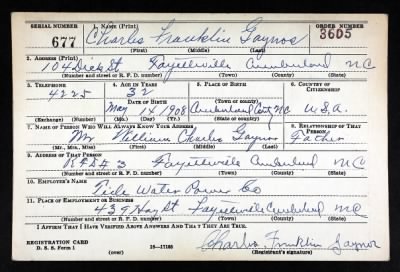 SERIAL NUMBER 1. NAME (Print) ORDER NUMBER
677 Charles Franklin Gaynor 3605
(First) (Middle) (Last)
2. ADDRESS (Print)
104 Dick St Fayetteville Cumberland NC
(Number and street or R. F. D. number) (Town) (County) (State)
3. TELEPHONE 4. AGE IN YEARS 5. PLACE OF BIRTH 6. COUNTRY OF CITIZENSHIP
4225 32
DATE OF BIRTH (Town or county)
May 14 1908 Cumberland Cnty NC U.S.A.
(Exchange) (Number) (Mo.) (Day) (Yr.) (State or country)
7. NAME OF PERSON WHO WILL ALWAYS KNOW YOUR ADDRESS 8. RELATIONSHIP OF THAT PERSON
Mr William Charles Gaynor Father
(Mr., Mrs., Miss) (First) (Middle) (Last)
9. ADDRESS OF THAT PERSON
RFD # 3 Fayetteville Cumberland NC
(Number and street or R. F. D. number) (Town) (County) (State)
10. EMPLOYER'S NAME
Tide Water Power Co
11. PLACE OF EMPLOYMENT OR BUSINESS
439 Hay St Fayetteville Cumberland NC
(Number and street or R. F. D. number) (Town) (County) (State)
I AFFIRM THAT I HAVE VERIFIED ABOVE ANSWERS AND THAT THEY ARE TRUE.
REGISTRATION CARD
D. S. S. Form 1 (over) 16—17105 Charles Franklin Gaynor
(Registrant's signature)